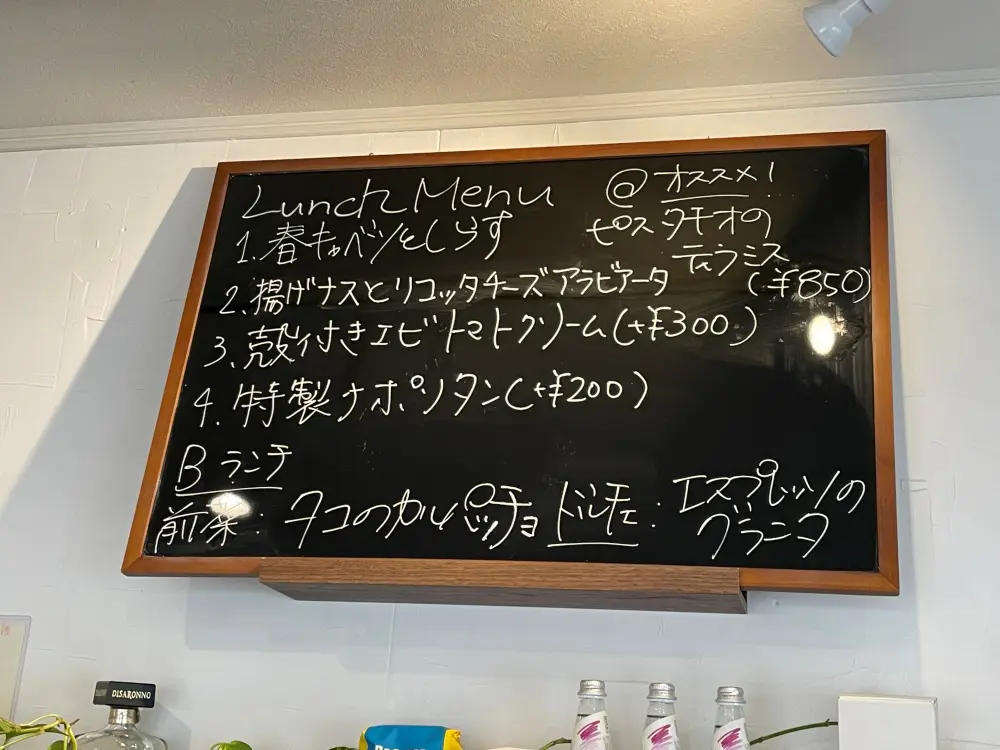 Lunch Menu
1. 春キャベツとしらす
2. 揚げナスとリコッタチーズアラビアータ
3. 殻付きエビトマトクリーム(+¥300)
4. 特製ナポリタン(+¥200)
@ オススメ!
ピスタチオの
ティラミス
(¥850)
Bランチ
前菜: タコのカルパッチョ
ドルチェ: エスプレッソの
グラニタ
DISARONNO